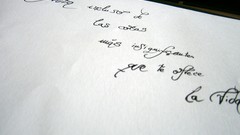 esclavo de
las cosas
más insignificantes
que te ofrece
la vida